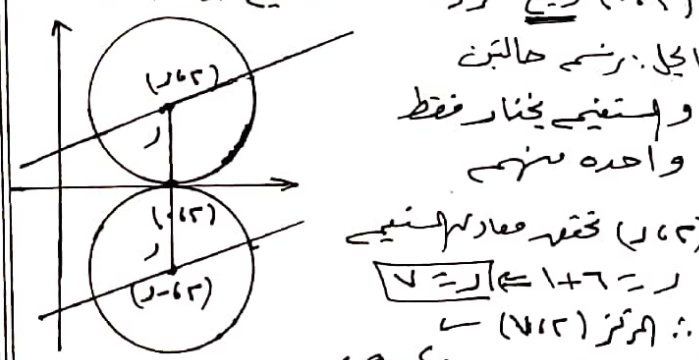 الحل: نرسم حالتين
والمستقيم يختار فقط
واحده منهم
(٢، ر) تحقق معادلة المستقيم
ر = ٦ + ١ ⇐ ر = ٧
∴ المركز (٢، ٧)
(٢، ر)
ر
(٢، ٠)
ر
(٢، -ر)